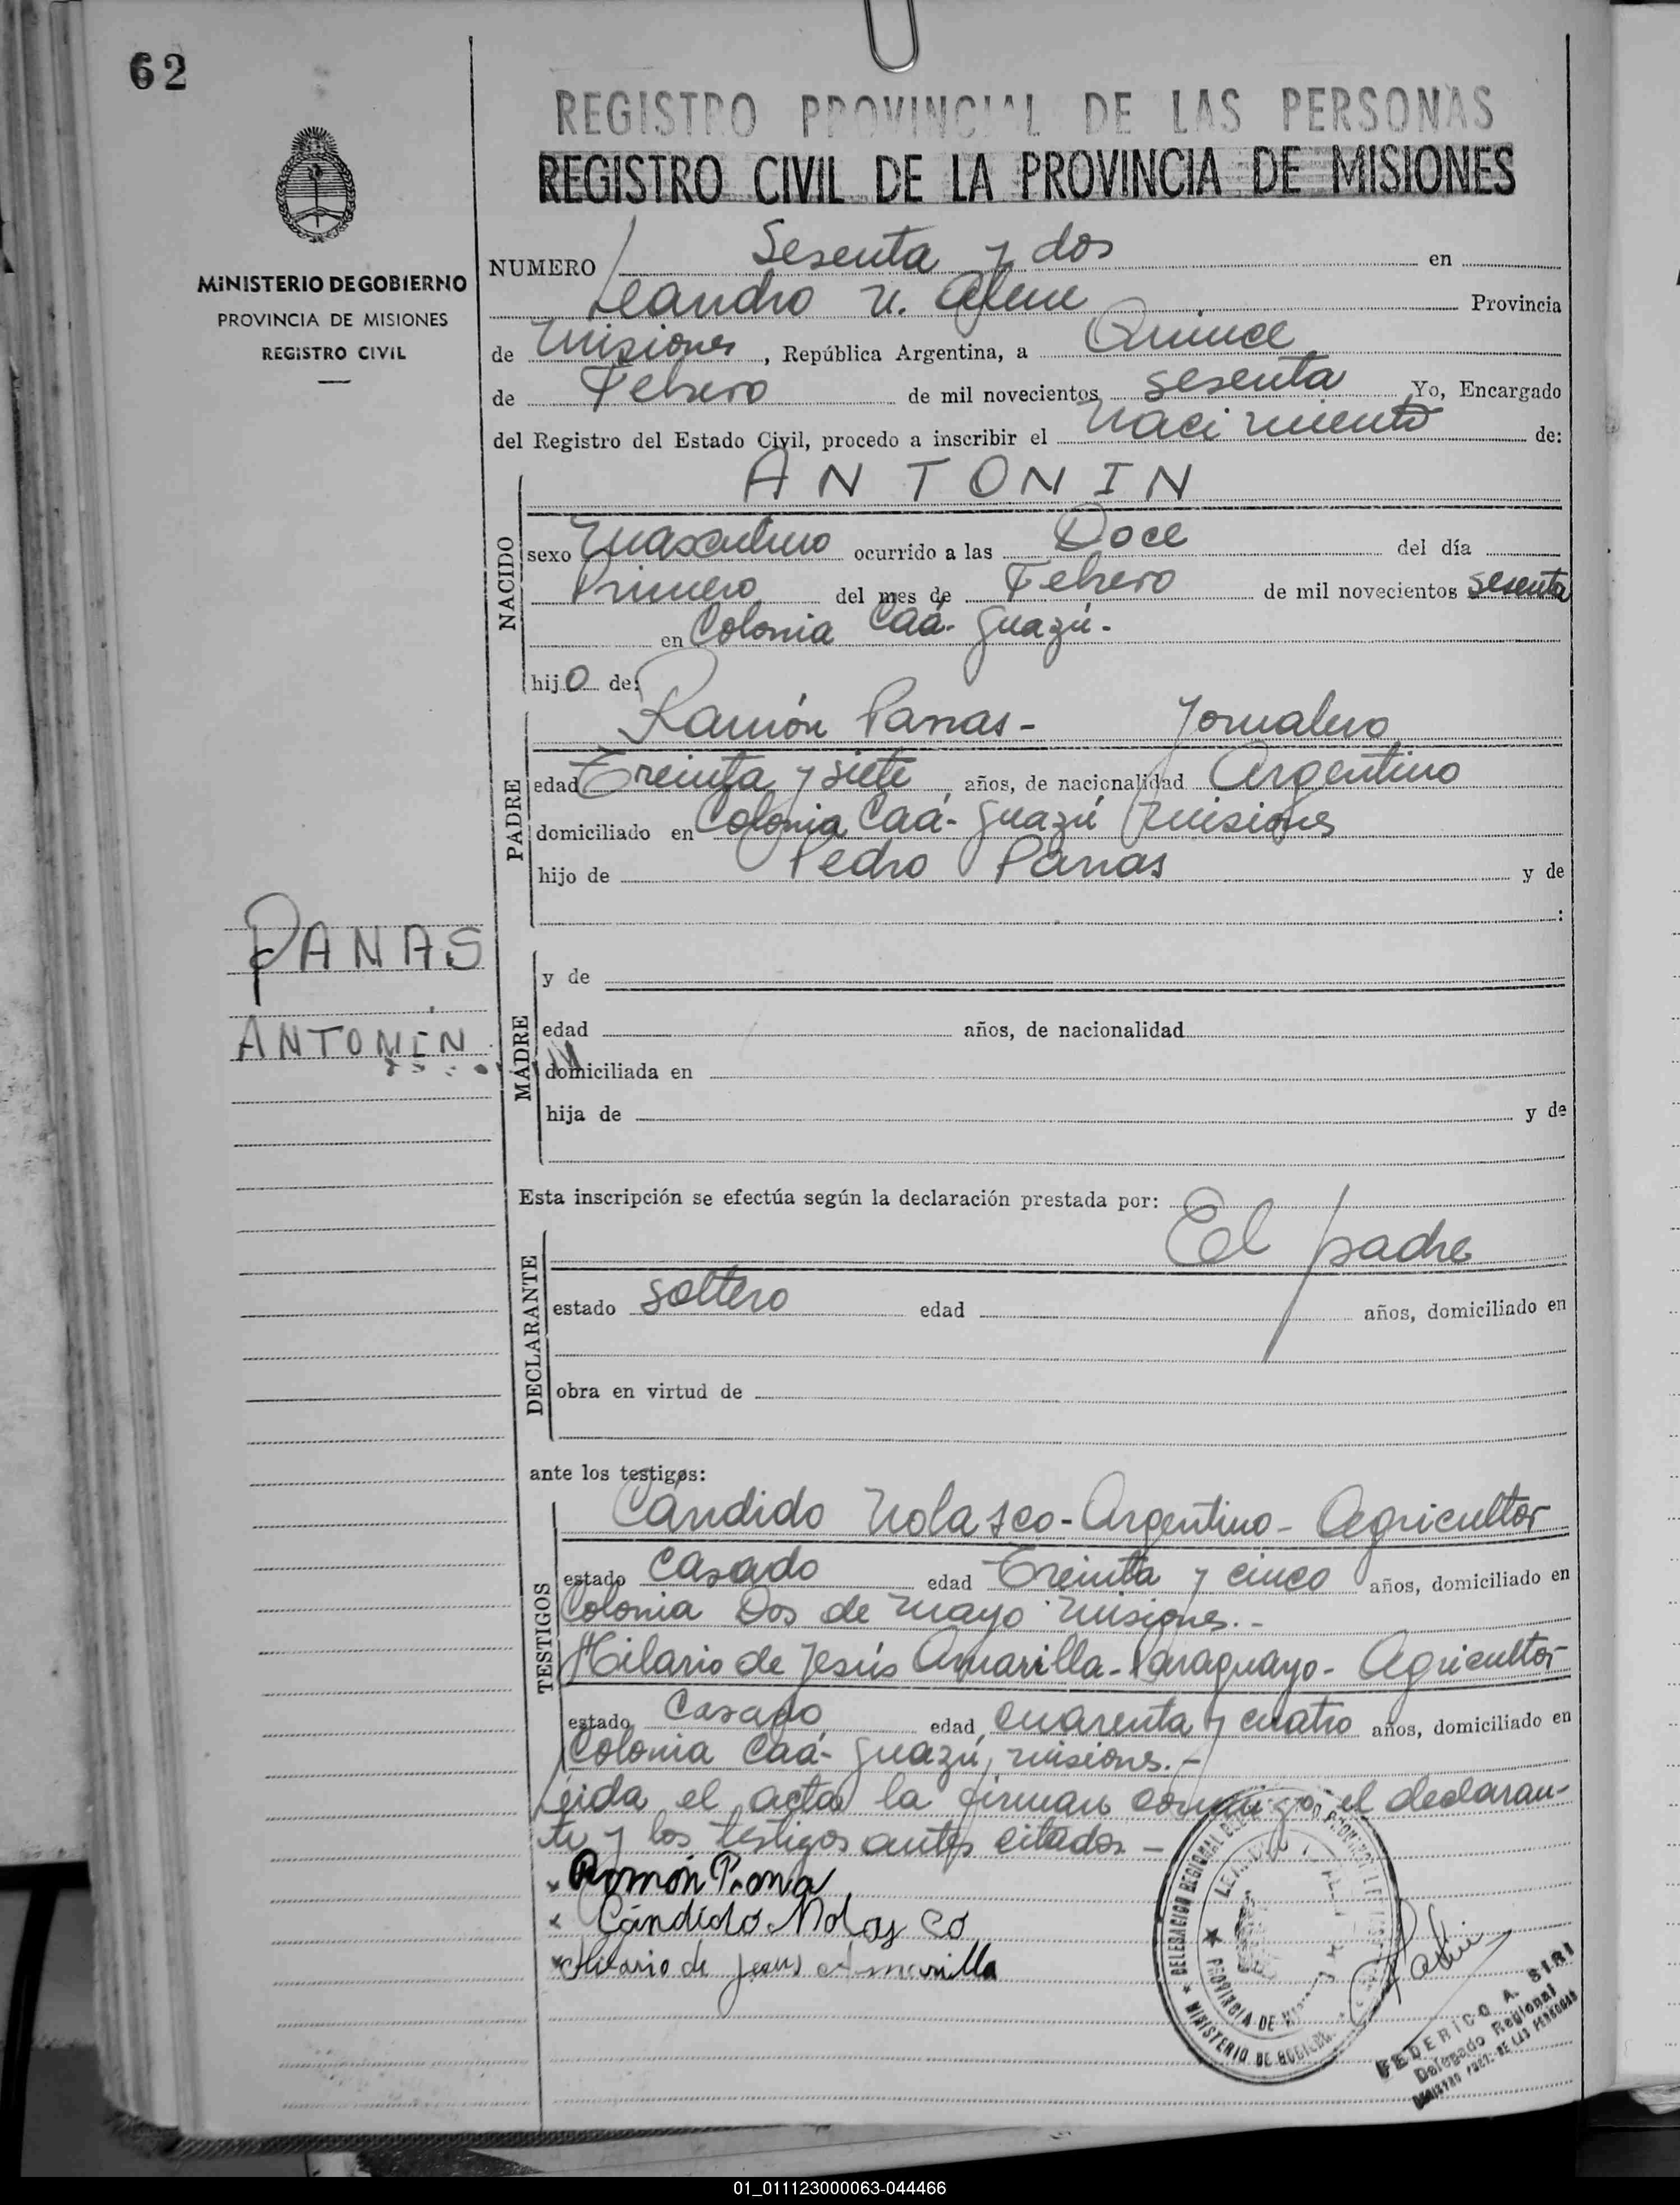 62
REGISTRO PROVINCIAL DE LAS PERSONAS
REGISTRO CIVIL DE LA PROVINCIA DE MISIONES
MINISTERIO DE GOBIERNO
PROVINCIA DE MISIONES
REGISTRO CIVIL
NUMERO Sesenta y dos en
Leandro N. Alem Provincia
de Misiones, República Argentina, a Quince
de Febrero de mil novecientos sesenta Yo, Encargado
del Registro del Estado Civil, procedo a inscribir el Nacimiento de:
NACIDO
ANTONIN
sexo Masculino ocurrido a las Doce del día
Primero del mes de Febrero de mil novecientos sesenta
en Colonia Caá-Guazú.-
hijo de:
PADRE
Ramón Panas- Jornalero
edad Treinta y siete años, de nacionalidad Argentino
domiciliado en Colonia Caá-Guazú Misiones
hijo de Pedro Panas y de
:
PANAS
ANTONIN
MADRE
y de
edad años, de nacionalidad
domiciliada en
hija de y de
Esta inscripción se efectúa según la declaración prestada por:
El padre
DECLARANTE
estado soltero edad años, domiciliado en
obra en virtud de
ante los testigos:
TESTIGOS
Cándido Nolasco-Argentino-Agricultor
estado Casado edad Treinta y cinco años, domiciliado en
Colonia Dos de Mayo Misiones.-
Hilario de Jesús Amarilla-Paraguayo-Agricultor
estado Casado edad cuarenta y cuatro años, domiciliado en
Colonia Caá-Guazú, Misiones.-
Leida el acta la firman conmigo, el declaran-
te y los testigos antes citados.-
Ramón
Cándido Nolasco
Hilario de Jesus Amarilla
DELEGACION REGIONAL
PROVINCIA DE
MINISTERIO DE GOBIERNO
FEDERICO A. SIRI
Delegado Regional
REGISTRO PROV. DE LAS PERSONAS
01_011123000063-044466